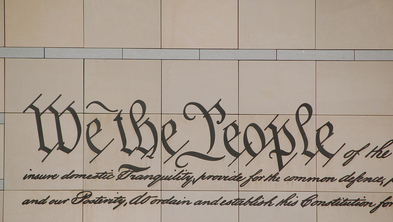 We the People of the
insure domestic Tranquility, provide for the common defence,
and our Posterity, do ordain and establish this Constitution for